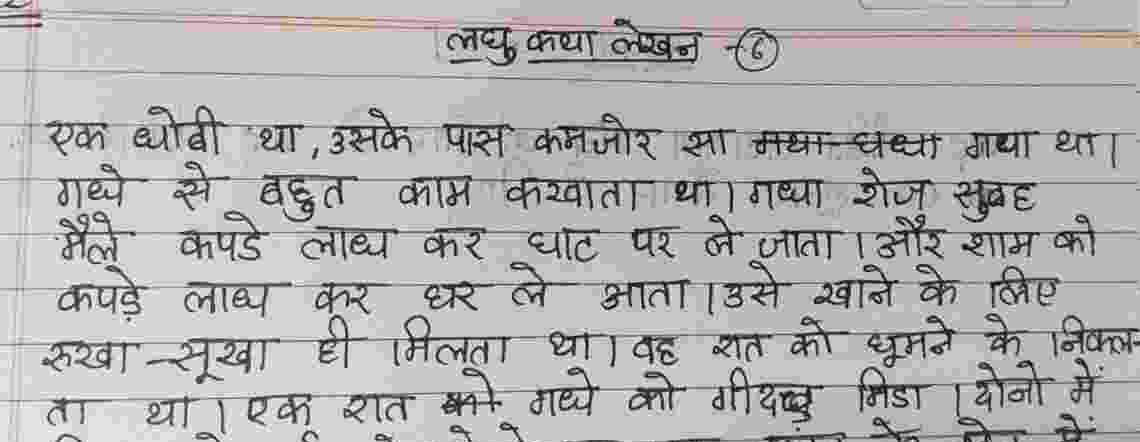 लघु कथा लेखन -6
एक धोबी था, उसके पास कमजोर सा गधा था।
गधे से बहुत काम करवाता था। गधा रोज सुबह
मैले कपडे लाध कर घाट पर ले जाता। और शाम को
कपड़े लाध कर घर ले आता। उसे खाने के लिए
रुखा-सूखा ही मिलता था। वह रात को घूमने के निकल-
ता था। एक रात गधे को गीदड़ मिडा। दोनो में